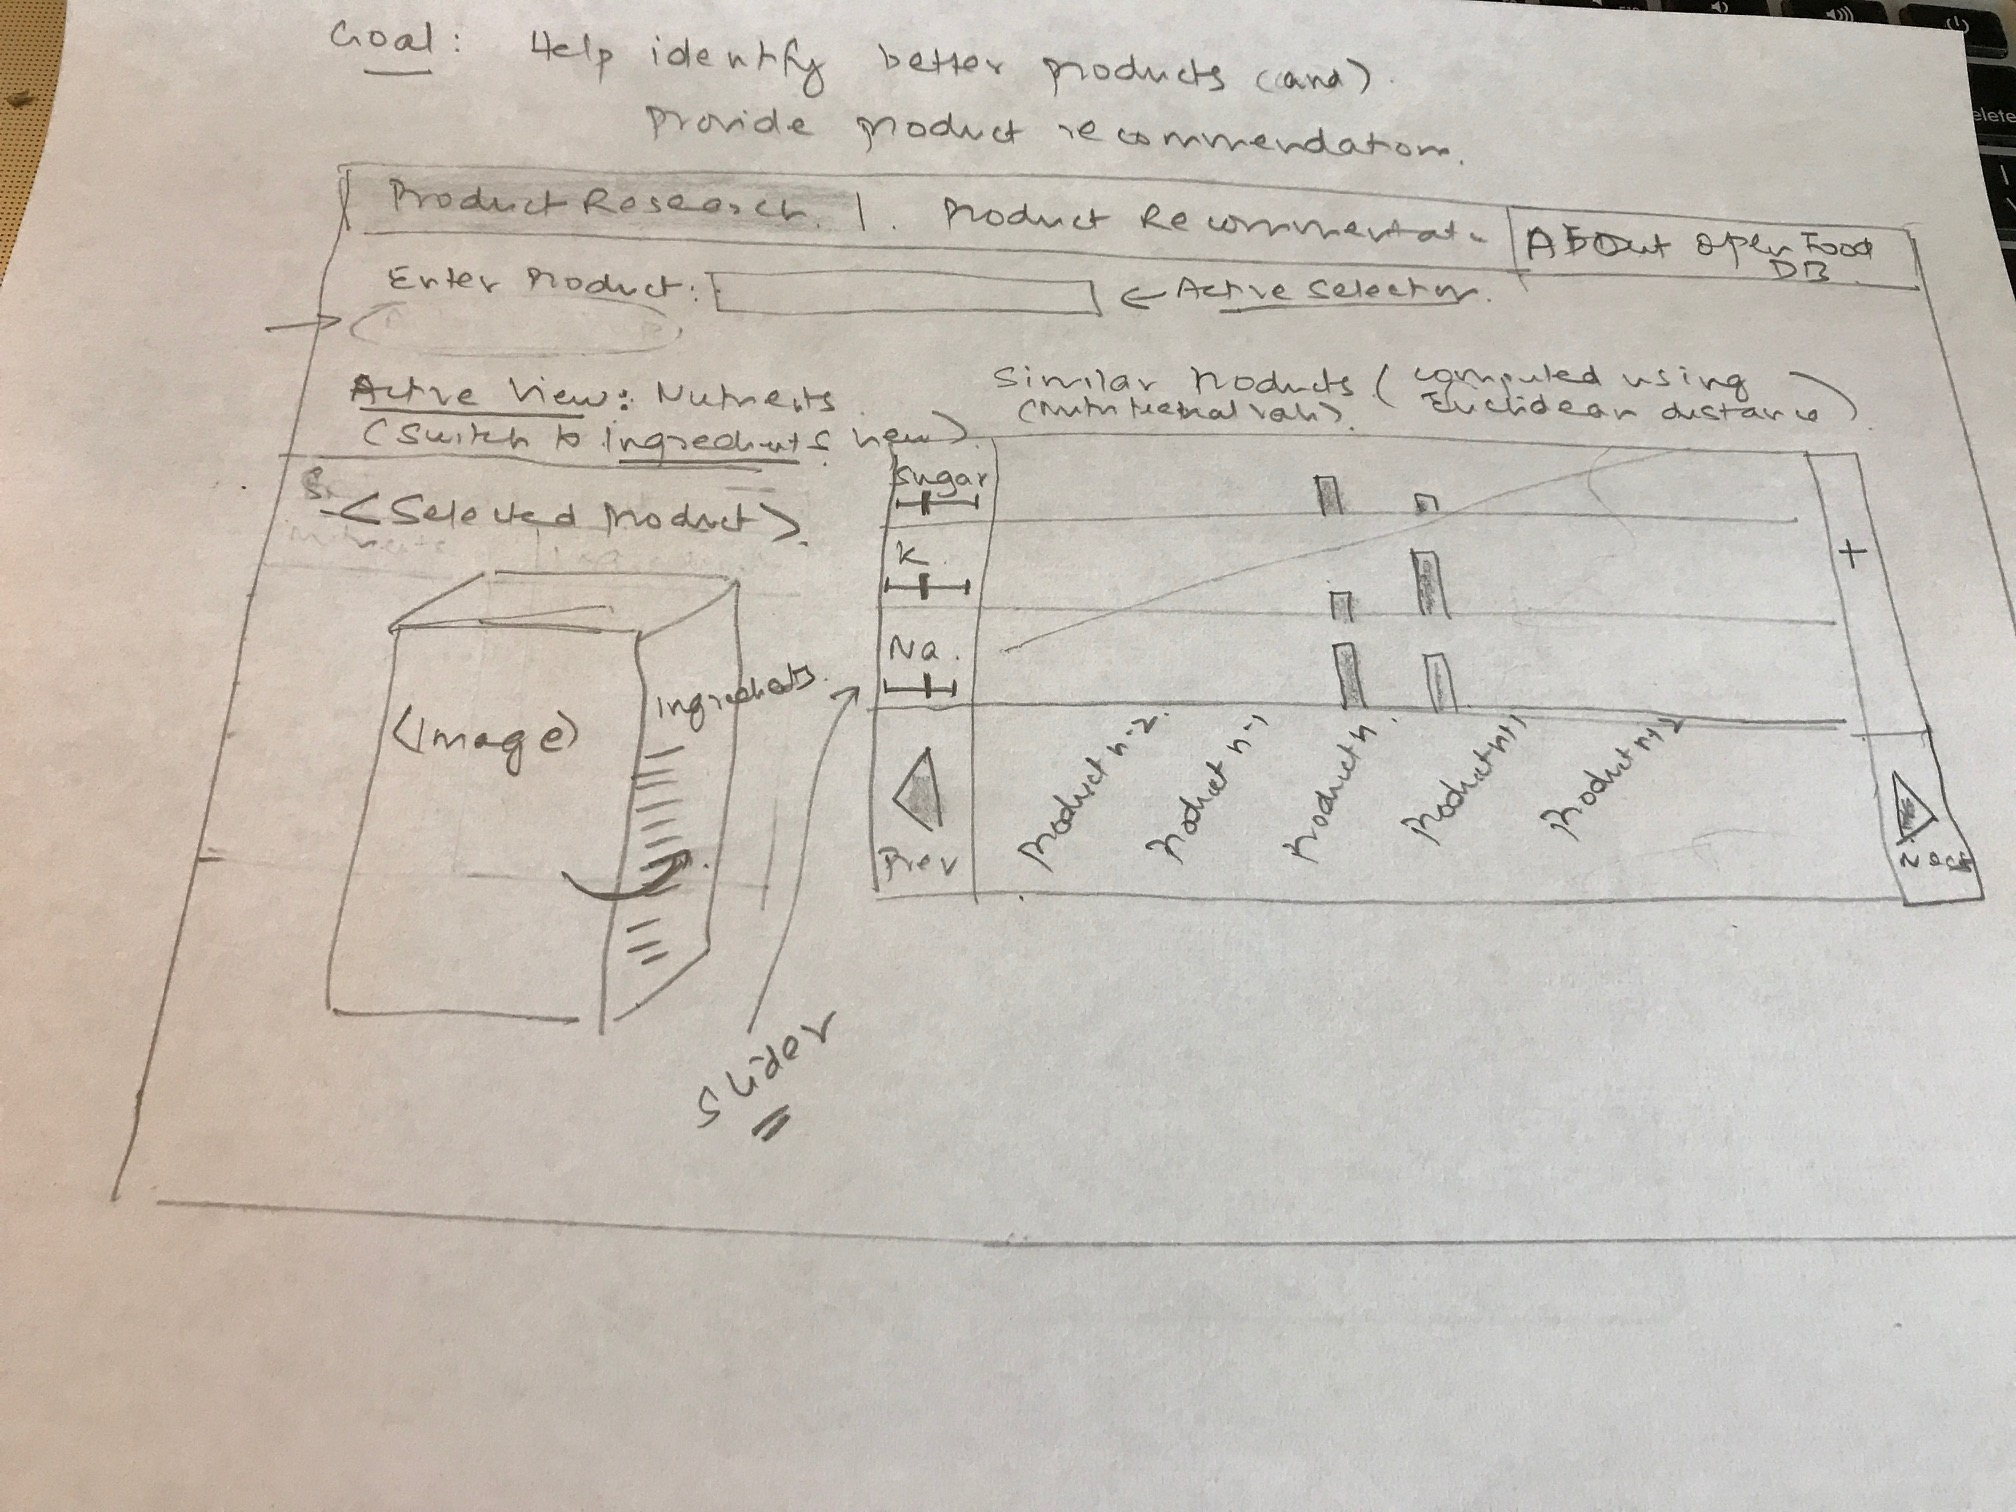 Goal: Help identify better products (and)
Provide product recommendations.
Product Research | Product Recommendat.
About Open Food
DB
Enter Product: ← Active Selector.
Active View: Nutrients
(Switch to Ingredients view)
Similar Products (computed using
Euclidean distance)
<Selected Product>
Sugar
K
Na.
+
Ingredients
(Image)
Product n-2
Product n-1
Product n
Product n+1
Product n+2
Prev
Next
Slider
elete